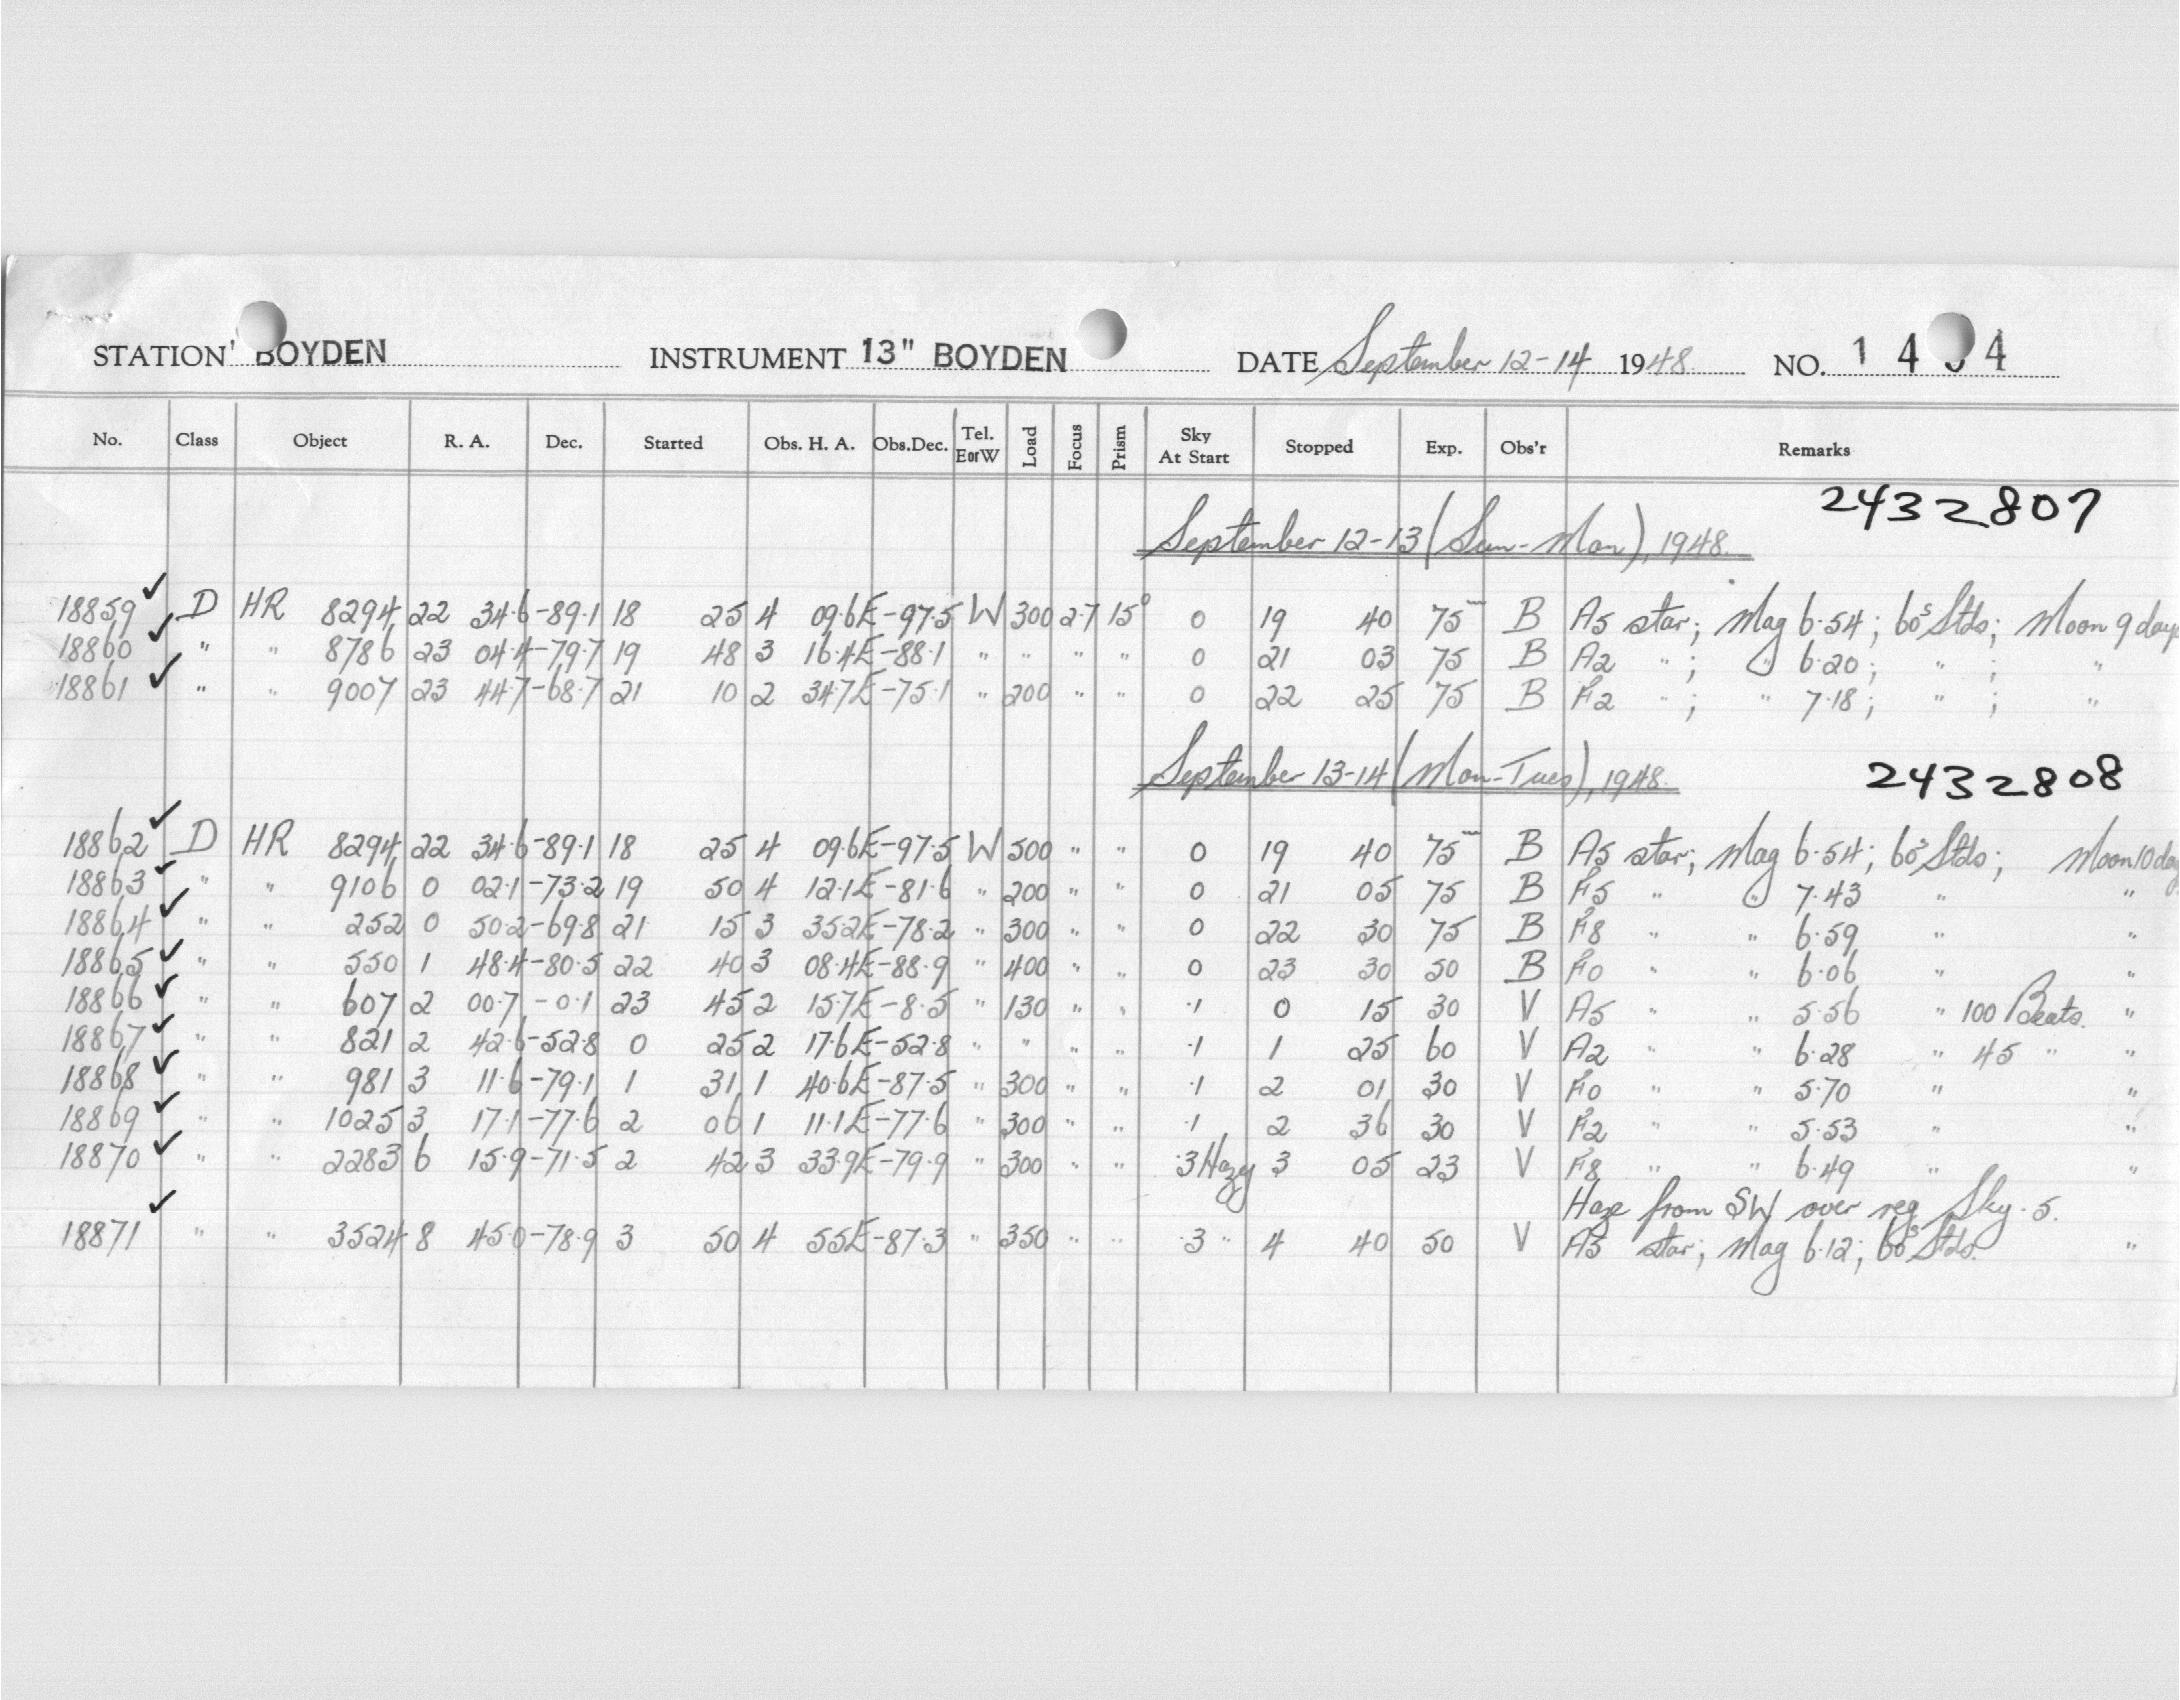 STATION BOYDEN INSTRUMENT 13" BOYDEN DATE September 12-14 1948 NO. 1 4 4
No. Class Object R. A. Dec. Started Obs. H. A. Obs.Dec. Tel. EorW Load Focus Prism Sky At Start Stopped Exp. Obs'r Remarks
2432807
September 12-13 (Sun-Mon), 1948.
18859 ✓ D HR 8294 22 34.6 -89.1 18 25 4 09.6E -97.5 W 300 2.7 15° 0 19 40 75 B A5 star; Mag 6.54; 60s Stds; Moon 9 days
18860 ✓ " " 8786 23 04.4 -79.7 19 48 3 16.4E -88.1 " " " " 0 21 03 75 B A2 " ; " 6.20; " ; "
18861 ✓ " " 9007 23 44.7 -68.7 21 10 2 34.7E -75.1 " 200 " " 0 22 25 75 B F2 " ; " 7.18; " ; "
September 13-14 (Mon-Tues), 1948.
2432808
18862 ✓ D HR 8294 22 34.6 -89.1 18 25 4 09.6E -97.5 W 500 " " 0 19 40 75 B A5 star; Mag 6.54; 60s Stds; Moon 10 day
18863 ✓ " " 9106 0 02.1 -73.2 19 50 4 12.1E -81.6 " 200 " " 0 21 05 75 B F5 " " 7.43 " "
18864 ✓ " " 252 0 50.2 -69.8 21 15 3 35.2E -78.2 " 300 " " 0 22 30 75 B F8 " " 6.59 " "
18865 ✓ " " 550 1 48.4 -80.5 22 40 3 08.4E -88.9 " 400 " " 0 23 30 50 B F0 " " 6.06 " "
18866 ✓ " " 607 2 00.7 -0.1 23 45 2 15.7E -8.5 " 130 " " .1 0 15 30 V A5 " " 5.56 " 100 Beats. "
18867 ✓ " " 821 2 42.6 -52.8 0 25 2 17.6E -52.8 " " " " .1 1 25 60 V A2 " " 6.28 " 45 " "
18868 ✓ " " 981 3 11.6 -79.1 1 31 1 40.6E -87.5 " 300 " " .1 2 01 30 V F0 " " 5.70 " "
18869 ✓ " " 1025 3 17.1 -77.6 2 06 1 11.1E -77.6 " 300 " " .1 2 36 30 V F2 " " 5.53 " "
18870 ✓ " " 2283 6 15.9 -71.5 2 42 3 33.9E -79.9 " 300 " " .3 Hazy 3 05 23 V F8 " " 6.49 " "
Haze from SW over reg Sky .5.
18871 ✓ " " 3524 8 45.0 -78.9 3 50 4 55E -87.3 " 350 " " .3 " 4 40 50 V A3 star; Mag 6.12; 60s Stds. "